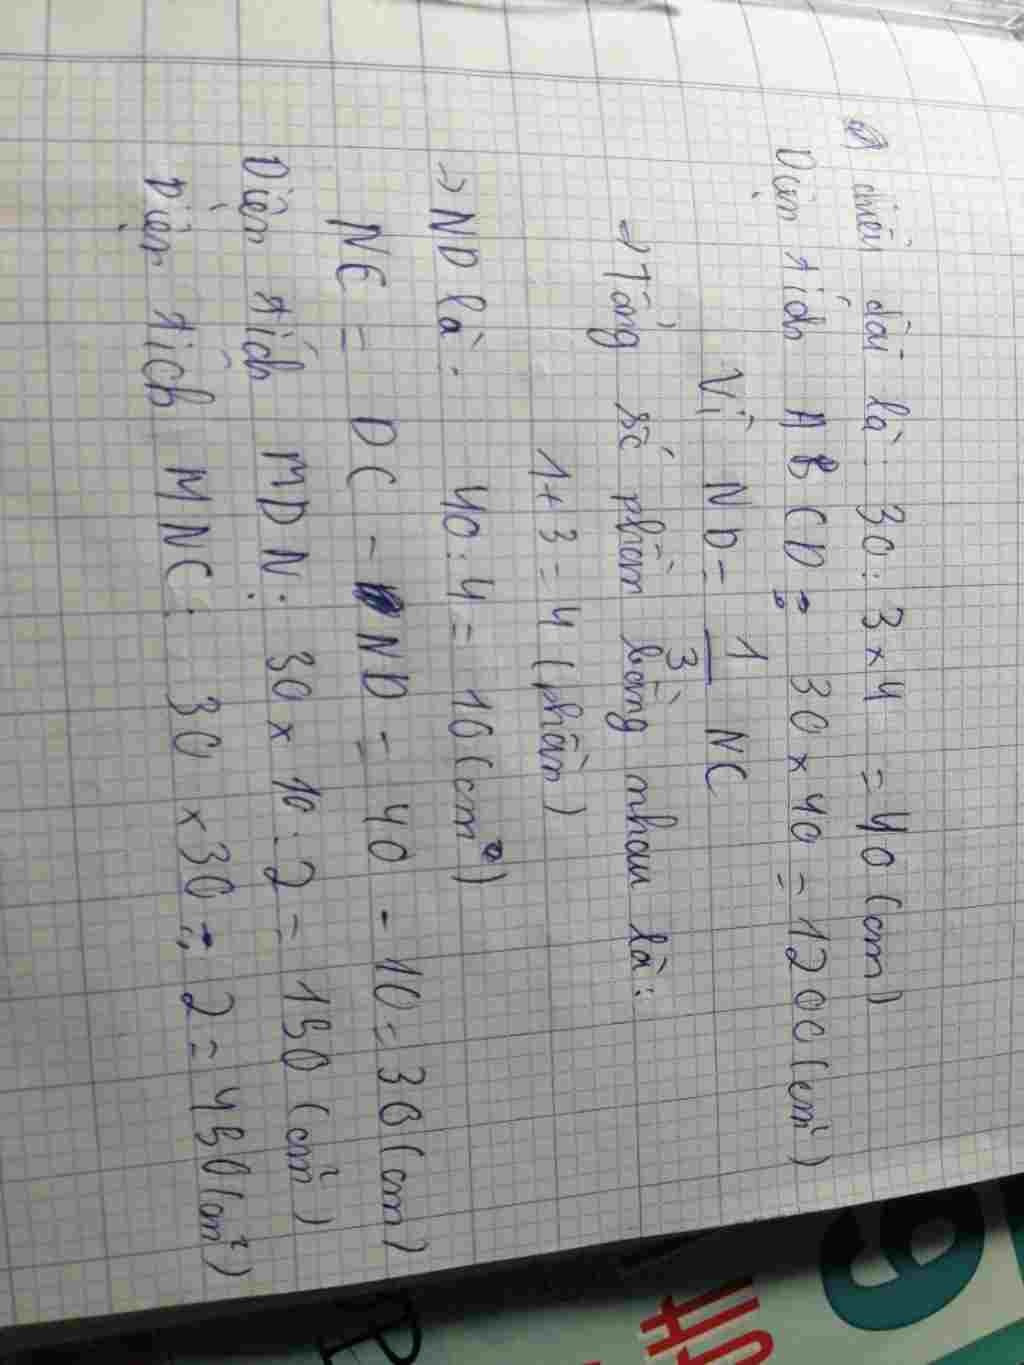 chiều dài là: 30: 3 x 4 = 40 (cm)
Diện tích ABCD = 30 x 40 = 1200 (cm²)
Vì ND = 1/3 NC
=> Tổng số phần bằng nhau là:
1 + 3 = 4 (phần)
-> ND là: 40 : 4 = 10 (cm)
NC = DC - ND = 40 - 10 = 30 (cm)
Diện tích MDN: 30 x 10 : 2 = 150 (cm²)
Diện tích MNC: 30 x 30 : 2 = 450 (cm²)